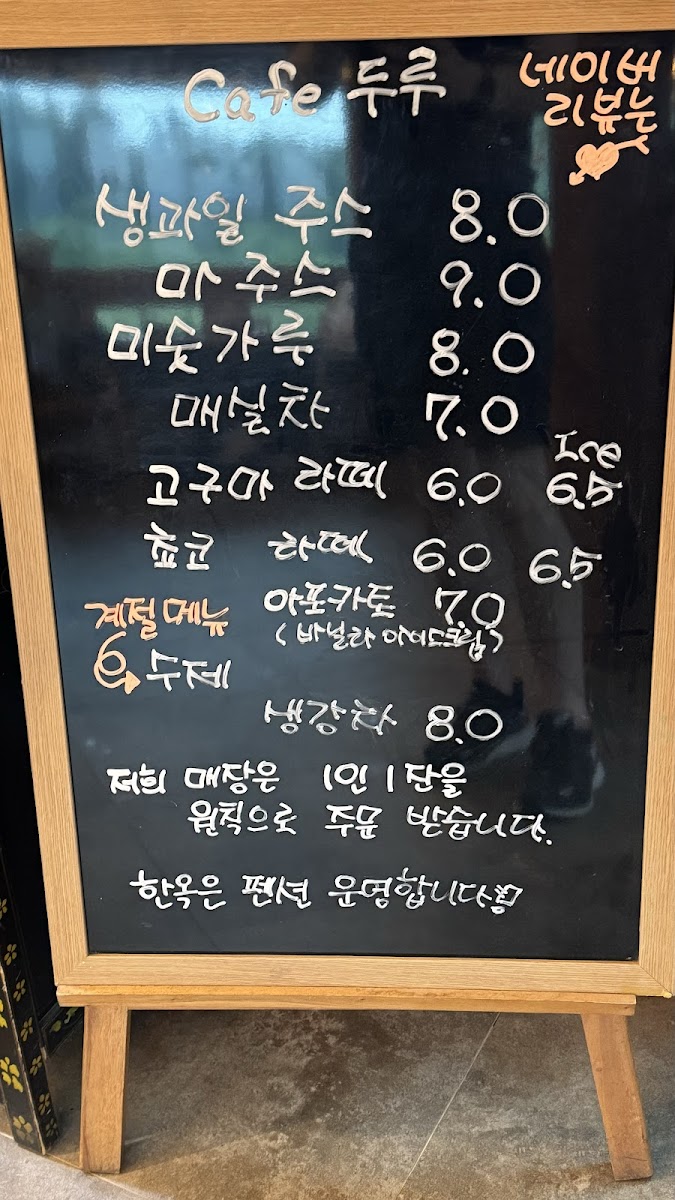 Cafe 두루
네이버
리뷰는
생과일 주스 8.0
마 주스 9.0
미숫가루 8.0
매실차 7.0
Ice
고구마 라떼 6.0 6.5
쵸코 라떼 6.0 6.5
아포카토 7.0
(바닐라 아이스크림)
계절메뉴
수제
생강차 8.0
저희 매장은 1인 1잔을
원칙으로 주문 받습니다.
한옥은 펜션 운영합니다